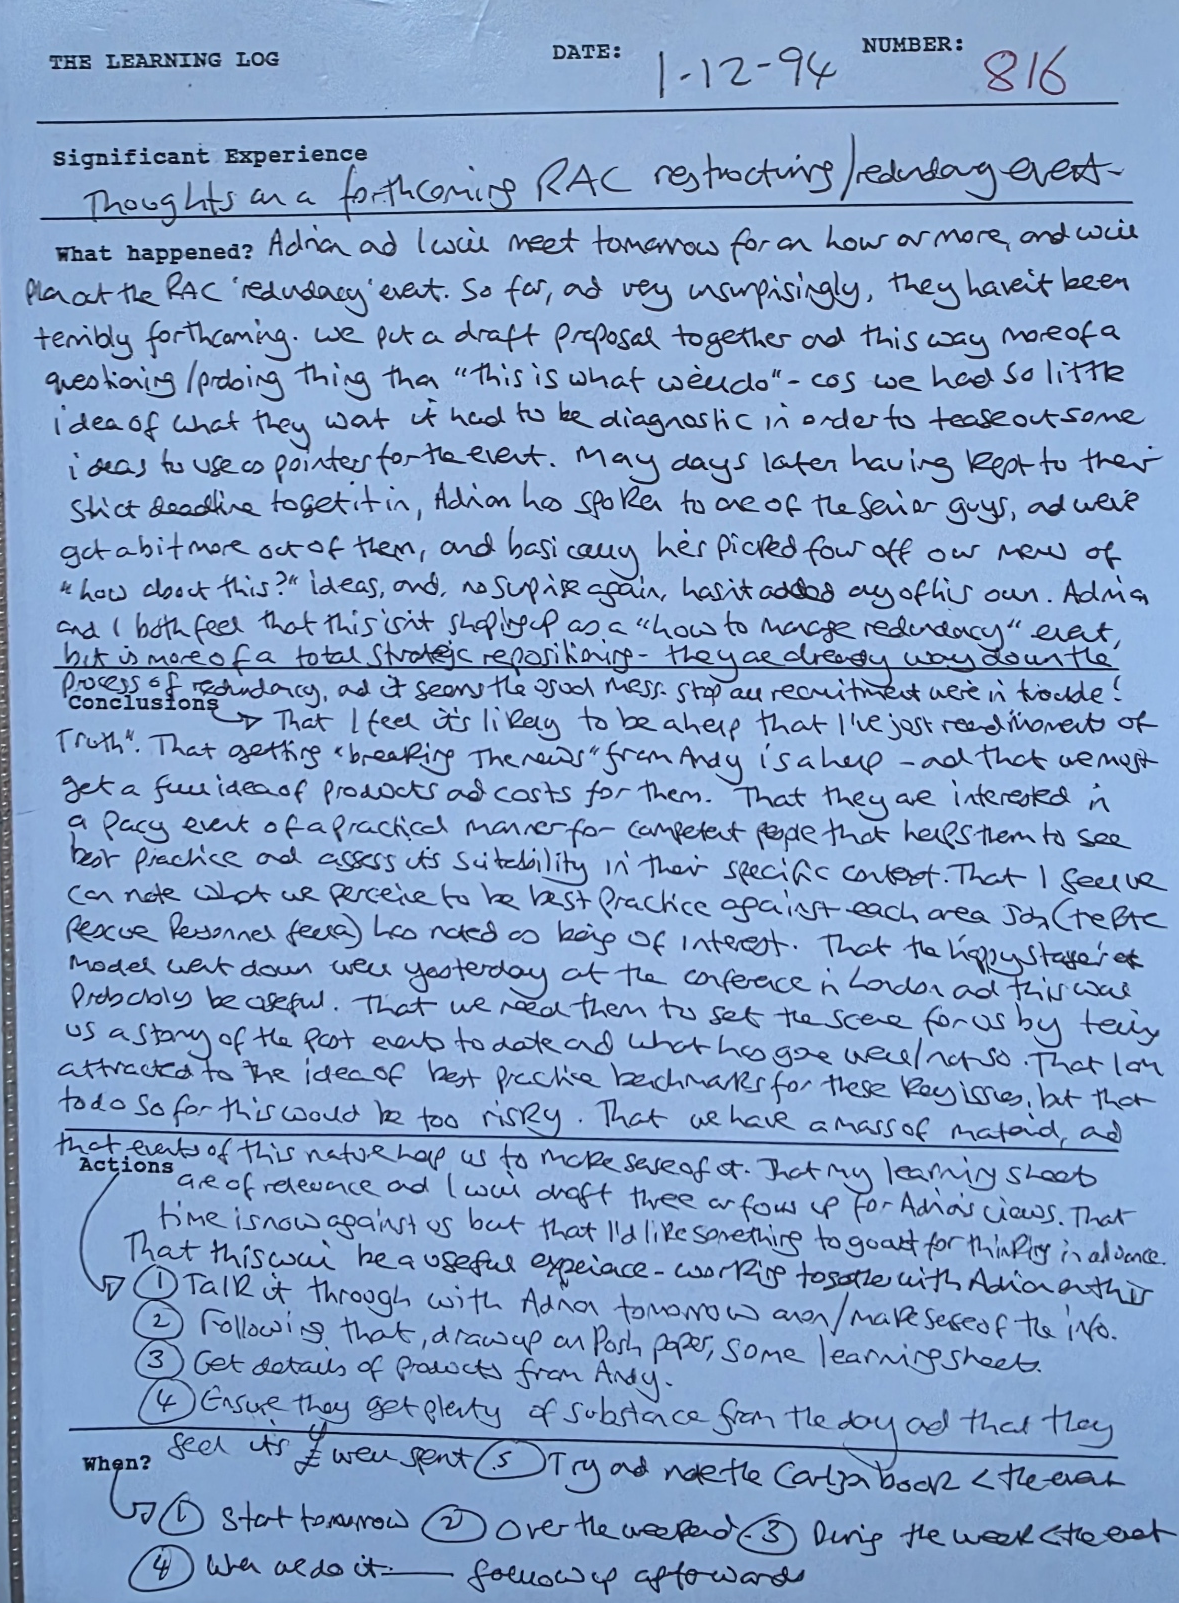 THE LEARNING LOG DATE: 1-12-94 NUMBER: 816
Significant Experience
Thoughts on a forthcoming RAC restructuring/redundancy event-
What happened? Adrian and I will meet tomorrow for an hour or more, and will
plan out the RAC 'redundacy' event. So far, and very unsurprisingly, they haven't been
terribly forthcoming. We put a draft proposal together and this way more of a
questioning/probing thing than "this is what we'll do" - cos we had so little
idea of what they want it had to be diagnostic in order to tease out some
ideas to use as pointers for the event. Many days later having kept to their
strict deadline to get it in, Adrian has spoken to one of the senior guys, and we've
got a bit more out of them, and basically he's picked four off our menu of
"how about this?" ideas, and, no suprise again, hasn't added any of his own. Adrian
and I both feel that this isn't shaping up as a "how to manage redundancy" event,
but is more of a total strategic repositioning - they are already way down the
process of redundancy, and it seems the usual mess. Stop all recruitment we're in trouble!
Conclusions
That I feel it's likely to be a help that I've just read "Moments of
Truth". That getting "breaking The news" from Andy is a help - and that we must
get a full idea of products and costs for them. That they are interested in
a pacy event of a practical manner for competent people that helps them to see
best practice and assess its suitability in their specific context. That I feel we
can note what we perceive to be best practice against each area John (the RAC
Rescue Personnel fella) has noted as being of interest. That the happy stages
model went down well yesterday at the conference in London and this will
probably be useful. That we need them to set the scene for us by telling
us a story of the past events to date and what has gone well/not so. That I am
attracted to the idea of best practice benchmarks for these key issues, but that
to do so for this would be too risky. That we have a mass of material, and
that events of this nature help us to make sense of it. That my learning sheets
Actions
are of relevance and I will draft three or fours up for Adrian's views. That
time is now against us but that I'd like something to go out for thinking in advance.
That this will be a useful experiace - working together with Adrian on this
① Talk it through with Adrian tomorrow /make sense of the info.
② Following that, draw up on Posh paper, some learning sheets.
③ Get details of products from Andy.
④ Ensure they get plenty of substance from the day and that they
feel it's £ well spent ⑤ Try and note the book < the event
When?
① Start tomorrow ② Over the weekend - ③ During the week < the event
④ When we do it - follow up afterwards